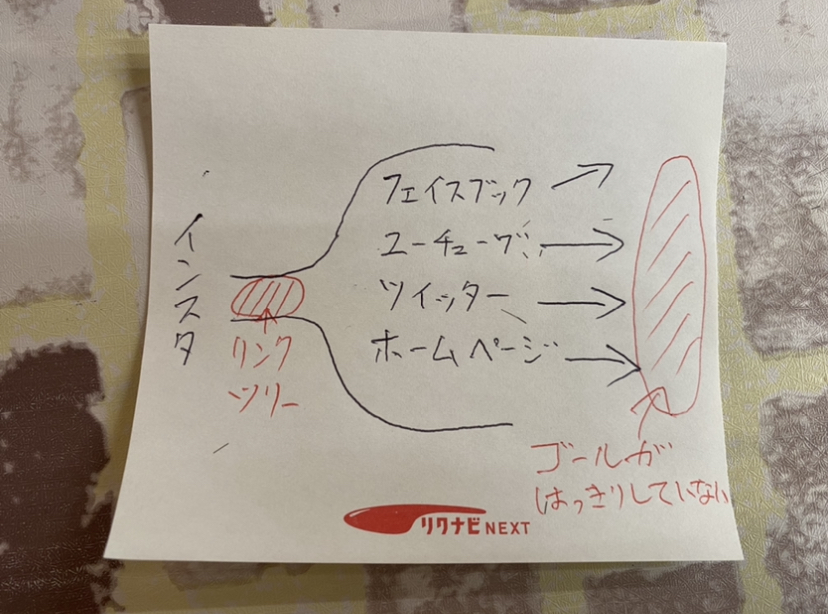 インスタ
リンク
ツリー
フェイスブック
ユーチューブ
ツイッター
ホームページ
ゴールが
はっきりしていない
リクナビNEXT